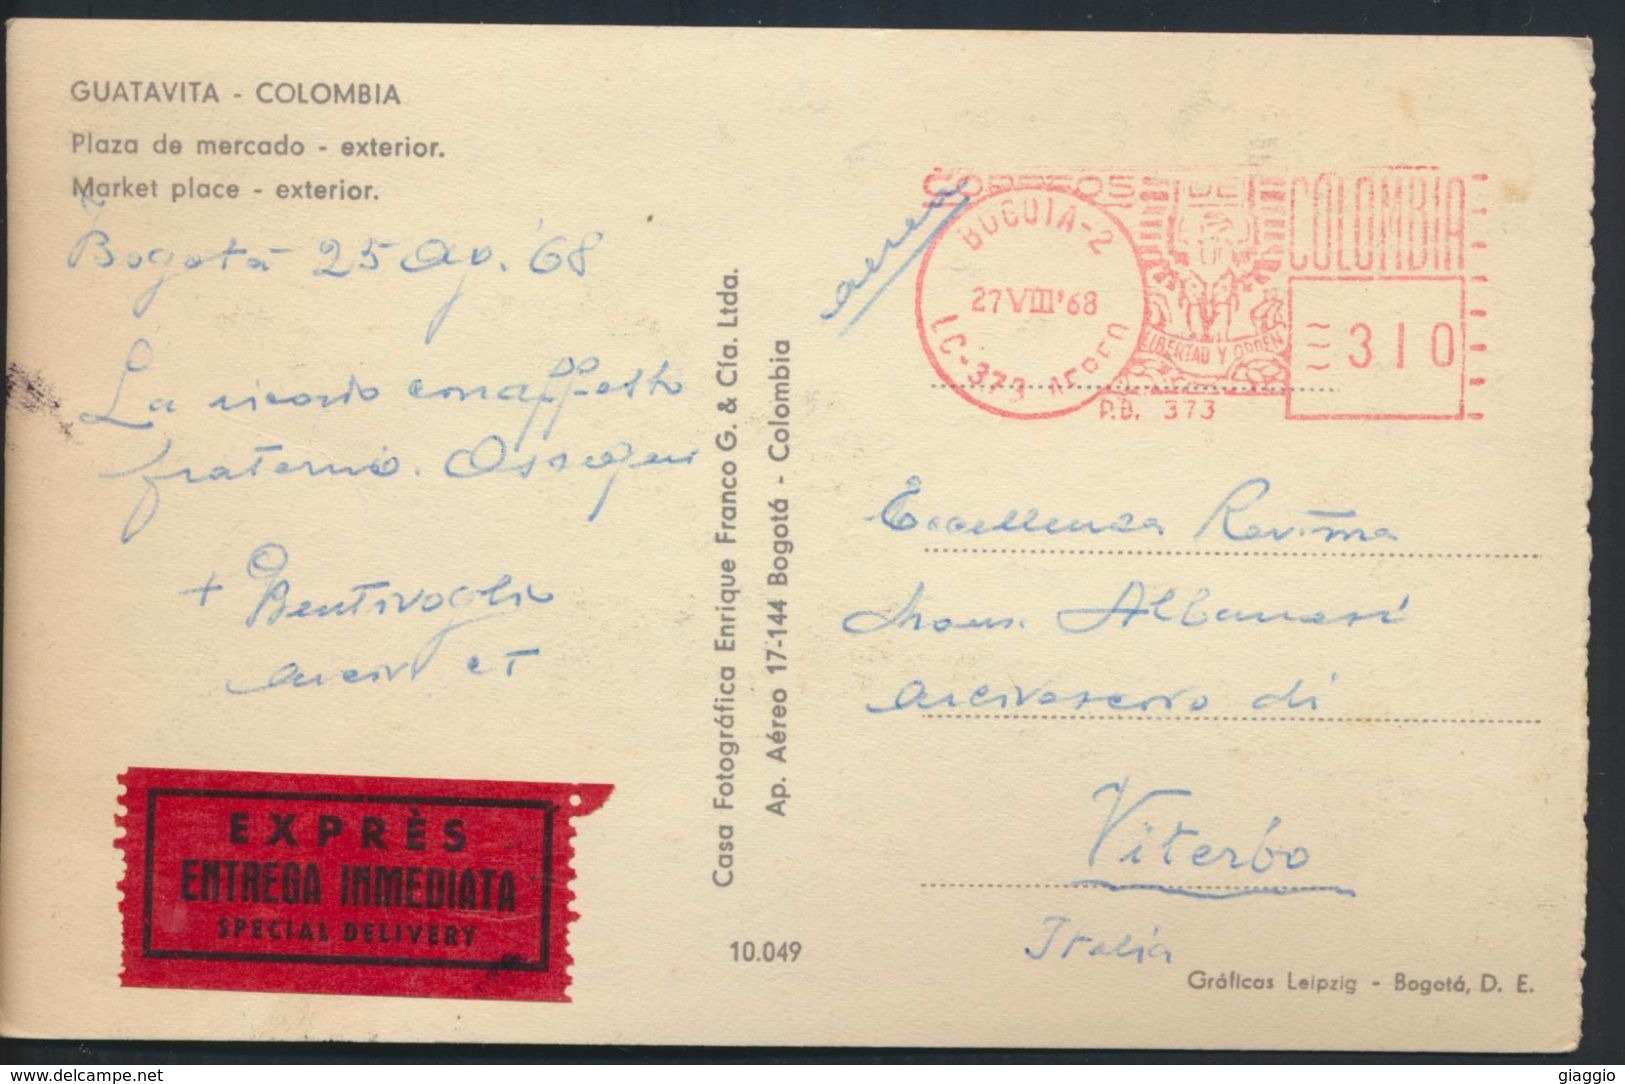 GUATAVITA - COLOMBIA
Plaza de mercado - exterior.
Market place - exterior.
Bogotá 25 Ag. '68
La ricordo con affetto
fraterno. Ossequi
+ Bentivoglio
arciv CT
EXPRÈS
ENTREGA INMEDIATA
SPECIAL DELIVERY
Casa Fotográfica Enrique Franco G. & Cía. Ltda.
Ap. Aéreo 17-144 Bogotá - Colombia
10.049
aereo
CORREOS DE COLOMBIA
BOGOTA-2
27 VIII '68
LC-373 AEREO
LIBERTAD Y ORDEN
310
P.B. 373
Eccellenza Rev.ma
Mons. Albanesi
arcivescovo di
Viterbo
Italia
Gráficas Leipzig - Bogotá, D. E.
www.delcampe.net
giaggio